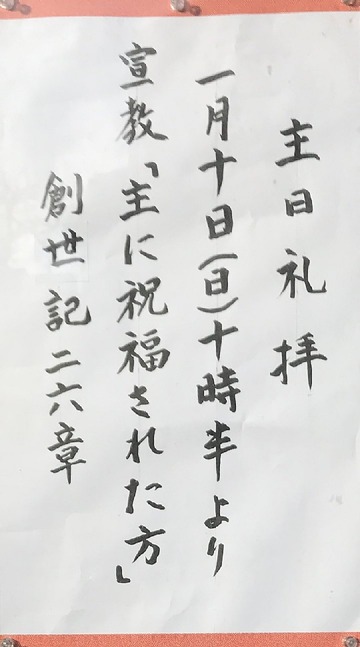 主日礼拝
一月十日(日)十時半より
宣教「主に祝福された方」
創世記二六章